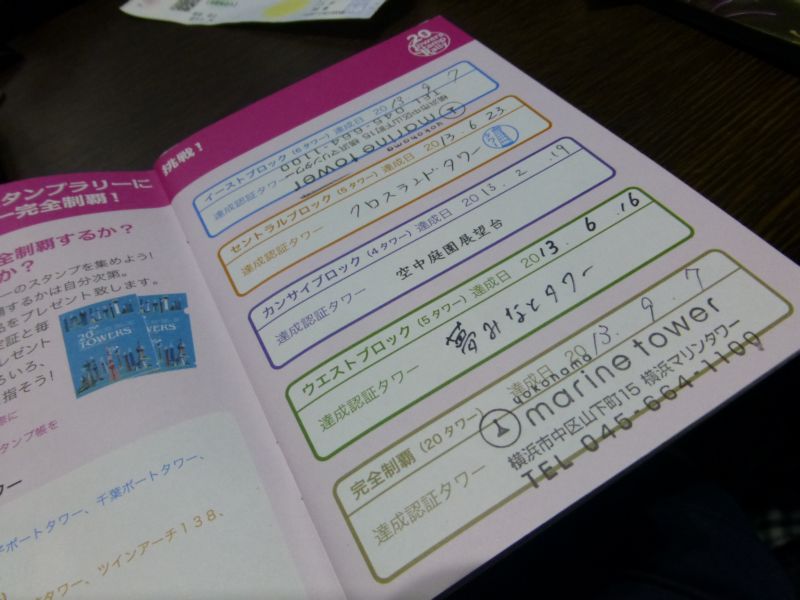 タンプラリーに
ー完全制覇！
全制覇するか？
か？
ーのスタンプを集めよう！
するかは自分次第。
品をプレゼント致します。
定証と毎
レゼント
ろいろ、
指そう！
スタンプ帳を
ワー
ポートタワー、千葉ポートタワー、
タワー、ツインアーチ138、
TOWERS
挑戦！
20
Towers
Stamp
Rally
イーストブロック（6タワー）達成日 2013. 9. 7
達成認証タワー
yokohama
marine tower
横浜市中区山下町15 横浜マリンタワー
TEL 045-664-1100
セントラルブロック（5タワー）達成日 2013. 6. 23
達成認証タワー クロスランドタワー
カンサイブロック（4タワー）達成日 2013. 2. 19
達成認証タワー 空中庭園展望台
ウエストブロック（5タワー）達成日 2013. 6. 16
達成認証タワー 夢みなとタワー
完全制覇（20タワー） 達成日 2013. 9. 7
達成認証タワー
yokohama
marine tower
横浜市中区山下町15 横浜マリンタワー
TEL 045-664-1100